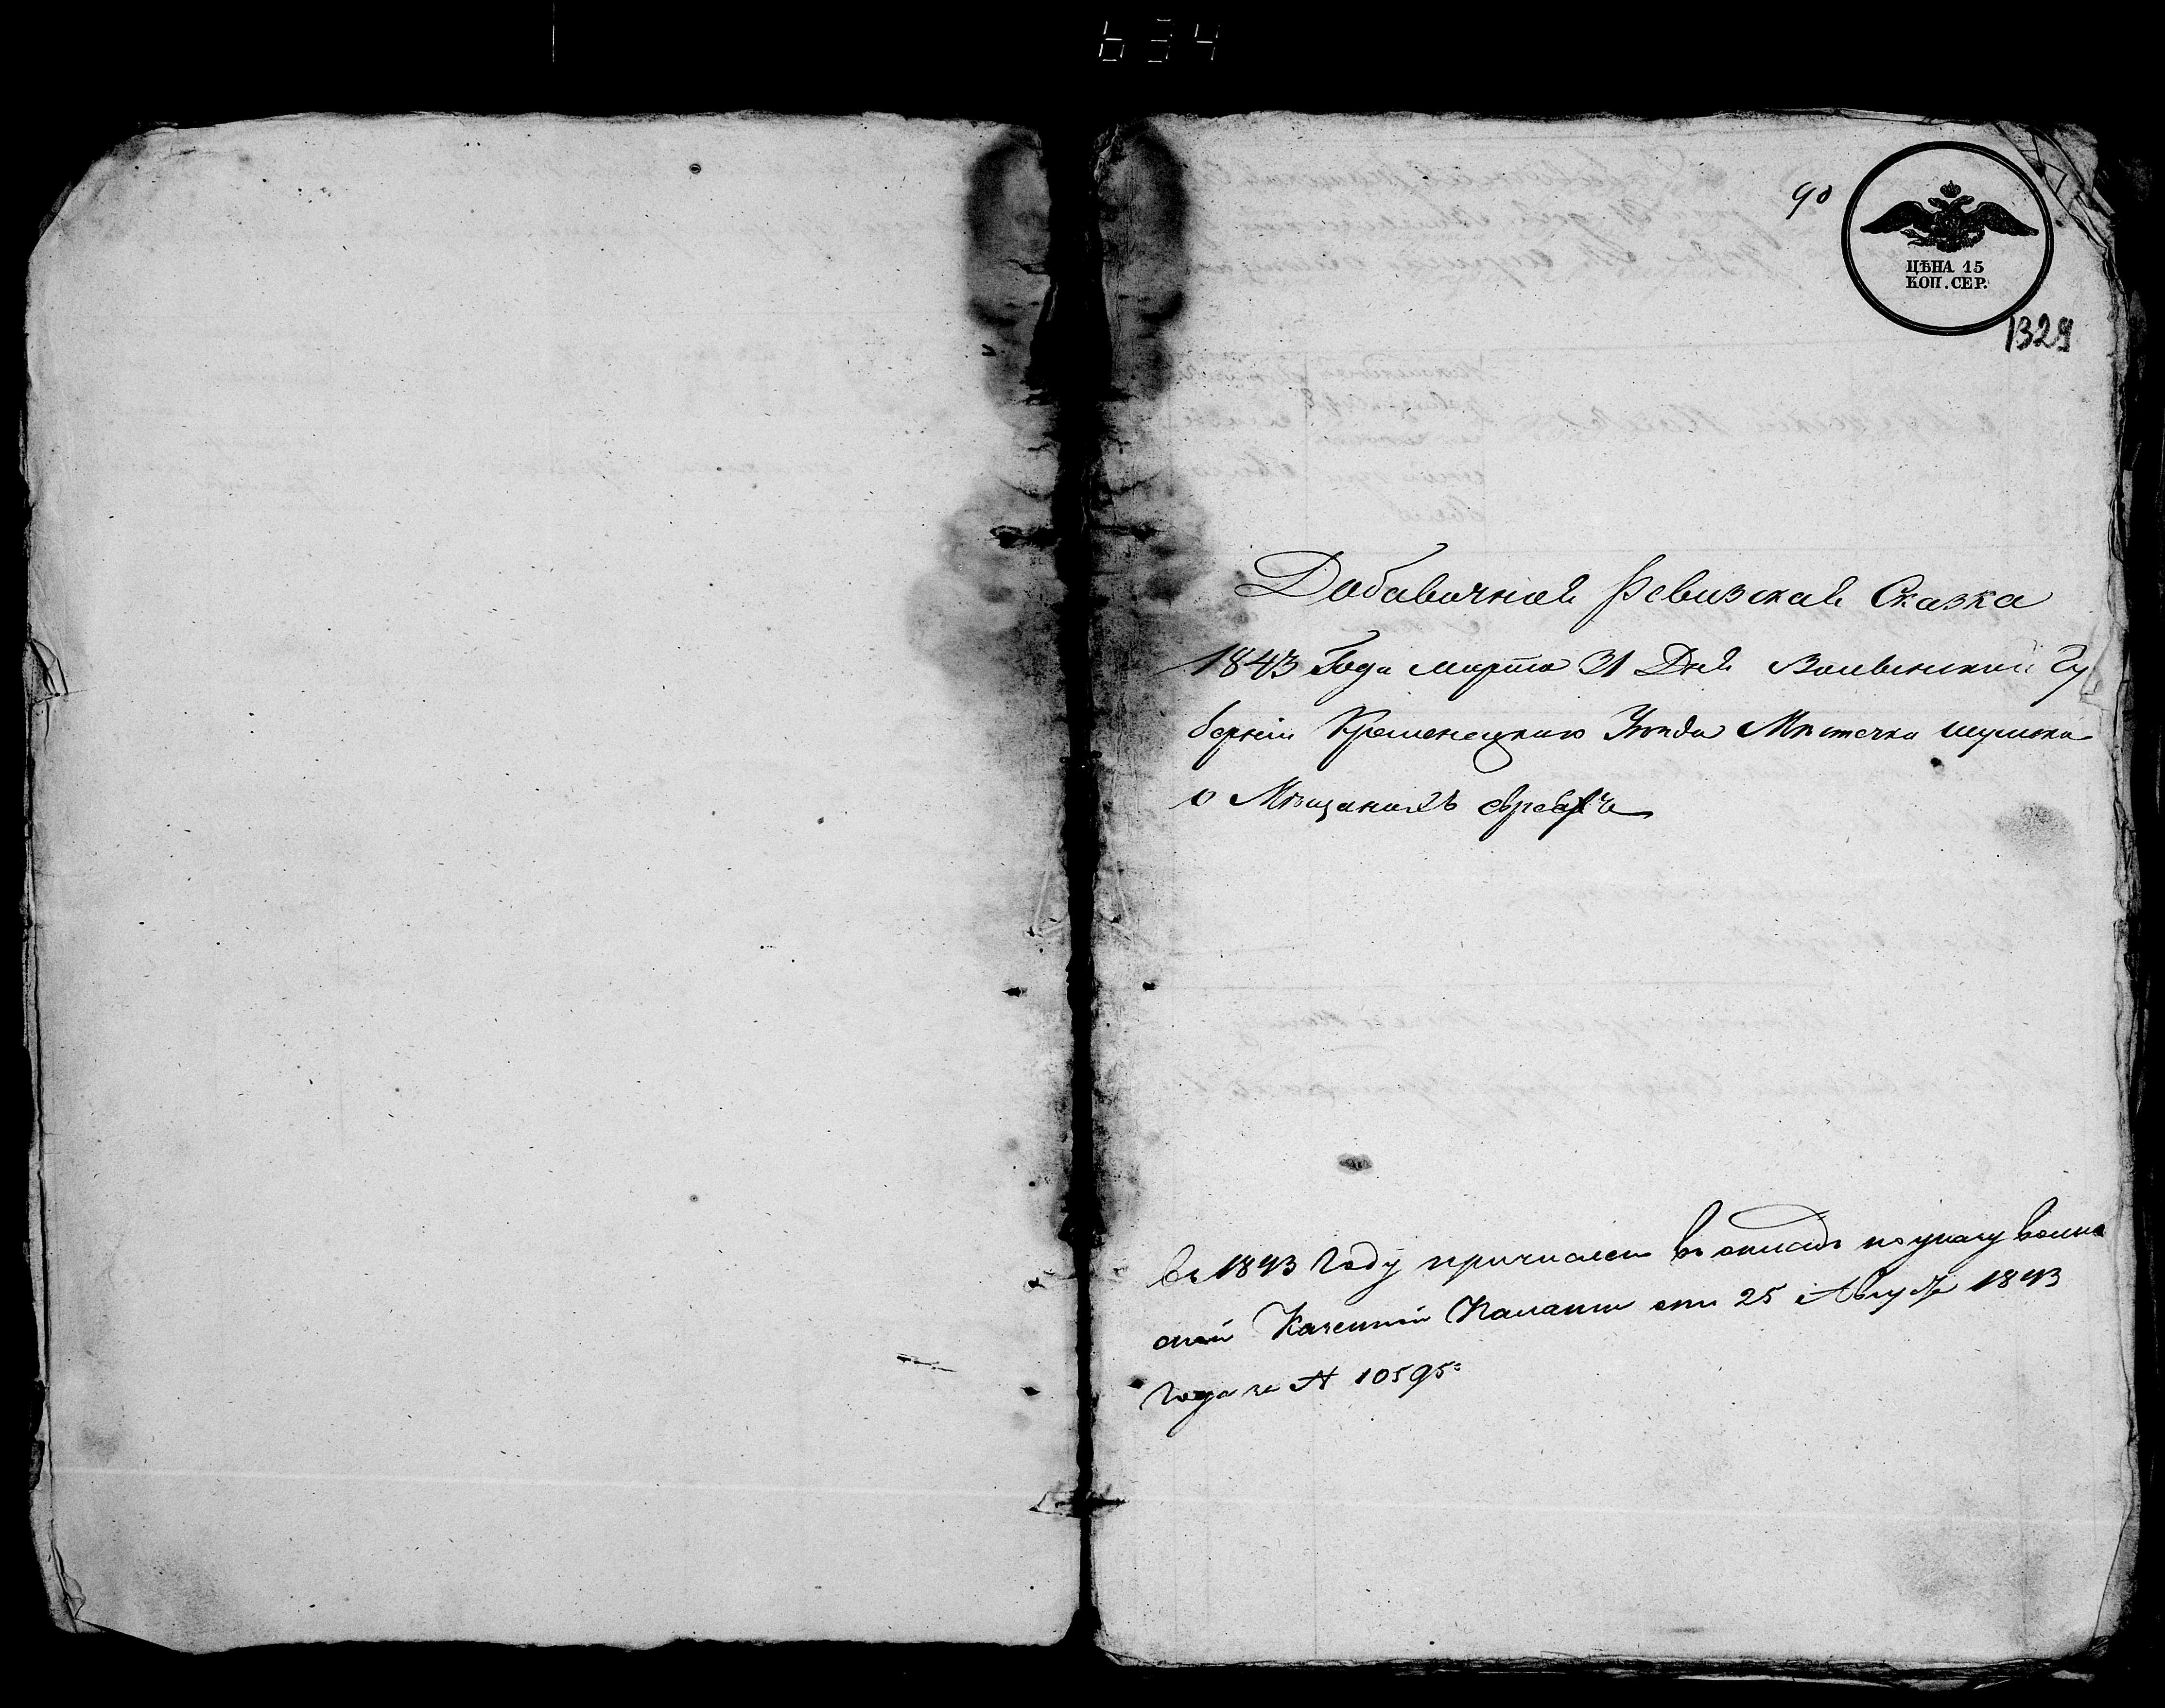 634
90
ЦѢНА 15
КОП. СЕР.
1329
Добавочная Ревизская Сказка
1843 Года марта 31 Дня Волынской Гу
берніи Кременецкаго Уѣзда Мѣстечка шумска
о Мѣщанахъ евреяхъ
въ 1843 Году причислен въ окладъ по указу волын
ской Казенной Палаты отъ 25 Августа 1843
Года за № 10595